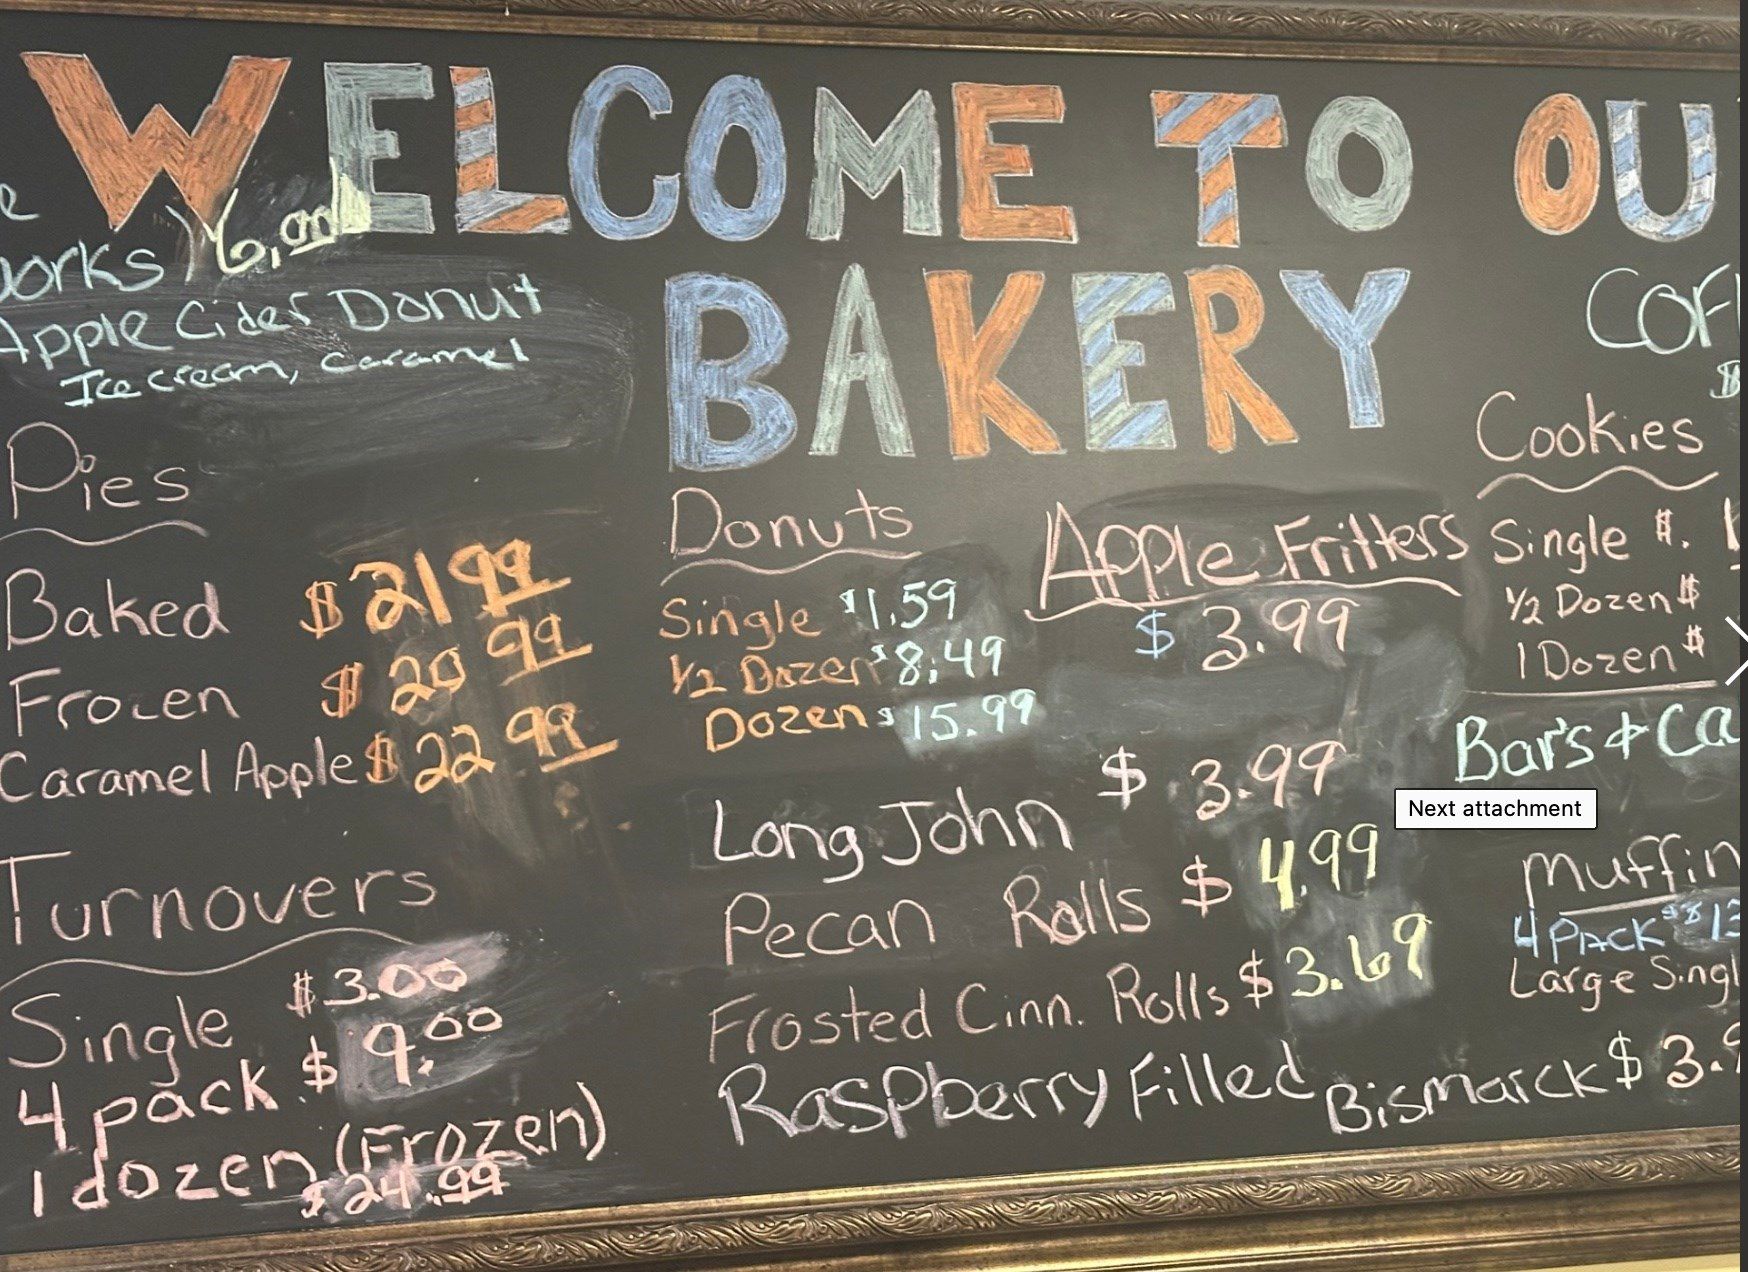 WELCOME TO OU
BAKERY
orks) 6.00
Apple Cider Donut
Ice cream, caramel
Pies
Baked $21 99
Frozen $20 99
Caramel Apple $22 99
Turnovers
Single $3.00
4 pack $9.00
1 dozen (Frozen)
$24.99
Donuts
Single $1.59
1/2 Dozen $8.49
Dozen $15.99
Apple Fritters
$3.99
Long John $3.99
Pecan Rolls $4.99
Frosted Cinn. Rolls $3.69
Raspberry Filled Bismarck $3.9
COF
$
Cookies
Single $.
1/2 Dozen $
1 Dozen $
Bar's + Ca
Next attachment
Muffin
4 PACK
Large Singl